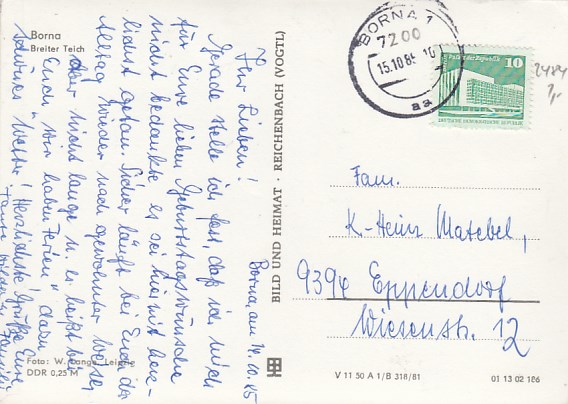 Borna
Breiter Teich
Borna, am 14.10.85
Ihr Lieben!
Gerade stelle ich fest, daß ich mich
für Eure lieben Geburtstagswünsche
nicht bedankte es sei hiermit herz-
lichst getan. Sicher läuft bei Euch der
Alltag wieder nach gewohnter Weise,
aber nicht lange u. es heißt bei
Euch "wir haben Ferien" dazu
schönes Wetter! Herzlichste Grüße Eure
Foto: W. Lange, Leipzig
DDR 0,25 M
BILD UND HEIMAT REICHENBACH (VOGTL)
BORNA 1
7200
15.10.85
aa
Palast der Republik
10
DEUTSCHE DEMOKRATISCHE REPUBLIK
2484
Fam.
K-Heinz Matebel,
9394 Eppendorf
Wiesenstr. 12
V 11 50 A 1/B 318/81
01 13 02 186